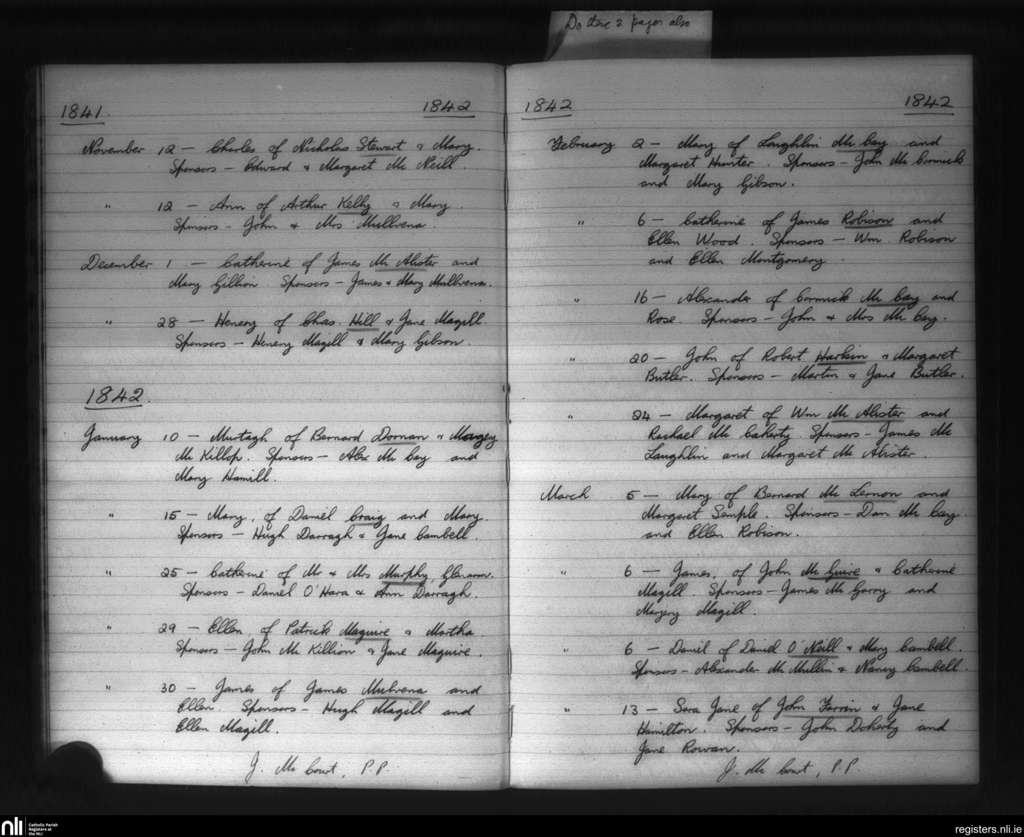 Do these 2 pages also
1841. 1842
November 12 - Charles of Nicholas Stewart & Mary.
Sponsors - Edward & Margaret Mc Neill.
" 12 - Ann of Arthur Kelly & Mary.
Sponsors - John & Mrs Mullvena
December 1 - Catherine of James Mc Alister and
Mary Gillion Sponsors - James & Mary Mullvena.
" 28 - Henery of Chas. Hill & Jane Magill
Sponsors - Henery Magill & Mary Gibson.
1842.
January 10 - Murtagh of Bernard Dornan & Margey
Mc Killop. Sponsors - Alex Mc Cay and
Mary Hamill.
" 15 - Mary, of Daniel Craig and Mary.
Sponsors - Hugh Darragh & Jane Cambell.
" 25 - Catherine of Mr & Mrs Murphy Glenarm.
Sponsors - Daniel O'Hara & Ann Darragh.
" 29 - Ellen, of Patrick Maguire & Martha.
Sponsors - John Mc Killion & Jane Maguire.
" 30 - James of James Mulvena and
Ellen. Sponsors - Hugh Magill and
Ellen Magill.
J. Mc Court, P.P.
1842 1842
February 2 - Mary of Laughlin Mc Cay and
Margaret Hunter. Sponsors - John Mc Cormick
and Mary Gibson.
" 6 - Catherine of James Robison and
Ellen Wood. Sponsors - Wm Robison
and Ellen Montgomery.
" 16 - Alexander of Cormick Mc Cay and
Rose. Sponsors - John & Mrs Mc Cay.
" 20 - John of Robert Harkin & Margaret
Butler. Sponsors - Martin & Jane Butler.
" 24 - Margaret of Wm Mc Alister and
Rachael Mc Caherty Sponsors - James Mc
Laughlin and Margaret Mc Alister
March 5 - Mary of Bernard Mc Lernon and
Margaret Semple. Sponsors - Dan Mc Cay.
and Ellen Robison.
" 6 - James, of John Mc Guire & Catherine
Magill. Sponsors - James Mc Garry and
Margery Magill.
" 6 - Daniel of Daniel O'Neill & Mary Cambell.
Sponsors - Alexander Mc Mullin & Nancy Cambell.
" 13 - Sera Jane of John Farrin & Jane
Hamilton. Sponsors - John Doherty and
Jane Rowan.
J. Mc Court, P.P.
nli Catholic Parish
Registers at
the NLI
registers.nli.ie